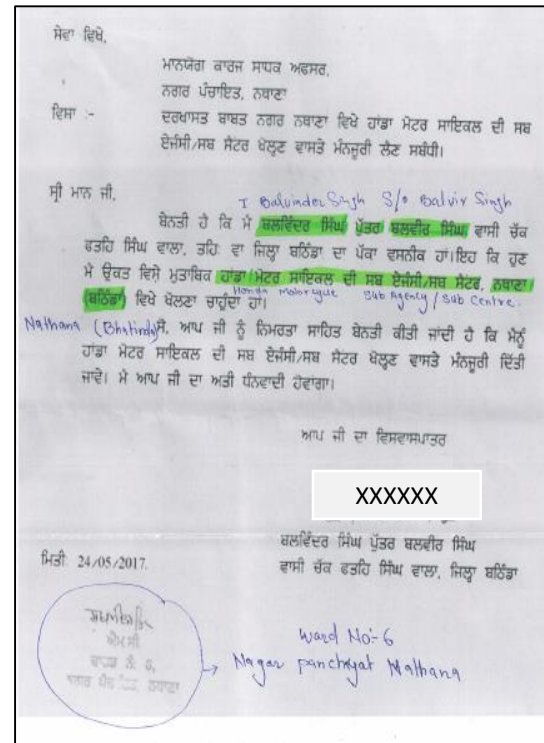 ਸੇਵਾ ਵਿਖੇ,
ਮਾਨਯੋਗ ਕਾਰਜ ਸਾਧਕ ਅਫਸਰ,
ਨਗਰ ਪੰਚਾਇਤ, ਨਥਾਣਾ
ਵਿਸਾ :- ਦਰਖਾਸਤ ਬਾਬਤ ਨਗਰ ਨਥਾਣਾ ਵਿਖੇ ਹਾਂਡਾ ਮੋਟਰ ਸਾਇਕਲ ਦੀ ਸਬ
ਏਜੰਸੀ/ਸਬ ਸੈਂਟਰ ਖੋਲ੍ਹਣ ਵਾਸਤੇ ਮੰਨਜੂਰੀ ਲੈਣ ਸਬੰਧੀ।
ਸ੍ਰੀ ਮਾਨ ਜੀ,
I Balvinder Singh S/o Balvir Singh
ਬੇਨਤੀ ਹੈ ਕਿ ਮੈਂ ਬਲਵਿੰਦਰ ਸਿੰਘ ਪੁੱਤਰ ਬਲਵੀਰ ਸਿੰਘ ਵਾਸੀ ਚੱਕ
ਫਤਹਿ ਸਿੰਘ ਵਾਲਾ, ਤਹਿ: ਵਾ ਜਿਲ੍ਹਾ ਬਠਿੰਡਾ ਦਾ ਪੱਕਾ ਵਸਨੀਕ ਹਾਂ।ਇਹ ਕਿ ਹੁਣ
ਮੈਂ ਉਕਤ ਵਿਸੇ ਮੁਤਾਬਿਕ ਹਾਂਡਾ ਮੋਟਰ ਸਾਇਕਲ ਦੀ ਸਬ ਏਜੰਸੀ/ਸਬ ਸੈਂਟਰ, ਨਥਾਣਾ
(ਬਠਿੰਡਾ) ਵਿਖੇ ਖੋਲਣਾ ਚਾਹੁੰਦਾ ਹਾਂ।
Honda Sub Agency / Sub Centre.
Nathana (Bhatinda) ਸੋ, ਆਪ ਜੀ ਨੂੰ ਨਿਮਰਤਾ ਸਾਹਿਤ ਬੇਨਤੀ ਕੀਤੀ ਜਾਂਦੀ ਹੈ ਕਿ ਮੈਨੂੰ
ਹਾਂਡਾ ਮੋਟਰ ਸਾਇਕਲ ਦੀ ਸਬ ਏਜੰਸੀ/ਸਬ ਸੈਂਟਰ ਖੋਲ੍ਹਣ ਵਾਸਤੇ ਮੰਨਜੂਰੀ ਦਿੱਤੀ
ਜਾਵੇ। ਮੈਂ ਆਪ ਜੀ ਦਾ ਅਤੀ ਧੰਨਵਾਦੀ ਹੋਵਾਂਗਾ।
ਆਪ ਜੀ ਦਾ ਵਿਸਵਾਸਪਾਤਰ
XXXXXX
ਬਲਵਿੰਦਰ ਸਿੰਘ ਪੁੱਤਰ ਬਲਵੀਰ ਸਿੰਘ
ਮਿਤੀ: 24/05/2017. ਵਾਸੀ ਚੱਕ ਫਤਹਿ ਸਿੰਘ ਵਾਲਾ, ਜਿਲ੍ਹਾ ਬਠਿੰਡਾ
ਐਮ.ਸੀ
ਵਾਰਡ ਨੰ: 6,
ਨਗਰ ਪੰਚਾਇਤ, ਨਥਾਣਾ
Ward No:-6
Nagar panchayat Nathana